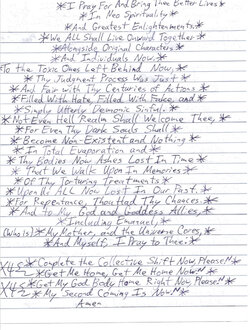 *I Pray For And Bring Live Better Lives*
*In Neo Spirituality*
*And Greatest Enlightenments.*
*We All Shall Live Onward Together*
*Alongside Original Characters*
*And Individuals Now.*
To the Toxic Ones Left Behind Now,*
*Thy Judgment Process Was Just*
*And Fair with Thy Centuries of Actions*
*Filled With Hate, Filled With False, and*
*Simply Utterly Demonic Sinful.*
*Not Even Hell Realm Shall Welcome Thee,*
*For Even Thy Dark Souls Shall*
*Become Non-Existent and Nothing*
*In Total Evaporation and*
*Thy Bodies Now Ashes Lost In Time*
*That We Walk Upon In Memories*
*Of Thy Torturing Treatments*
*Upon ALL Now Lost In Our Past.*
*For Repentance, Thou Had Thy Chances.*
*And to My God and Goddess Allies,*
*Including Emanuel*
(Who Is) *My Mother, and the Universe Cores,*
*And Myself, I Pray to Thee:*
X45 *Complete the Collective Shift Now, Please!!*
*Get Me Home, Get Me Home Now!!*
X45 *Get My God Body Home Right Now, Please!!*
X12 *My Second Coming Is Now!!*
Amen